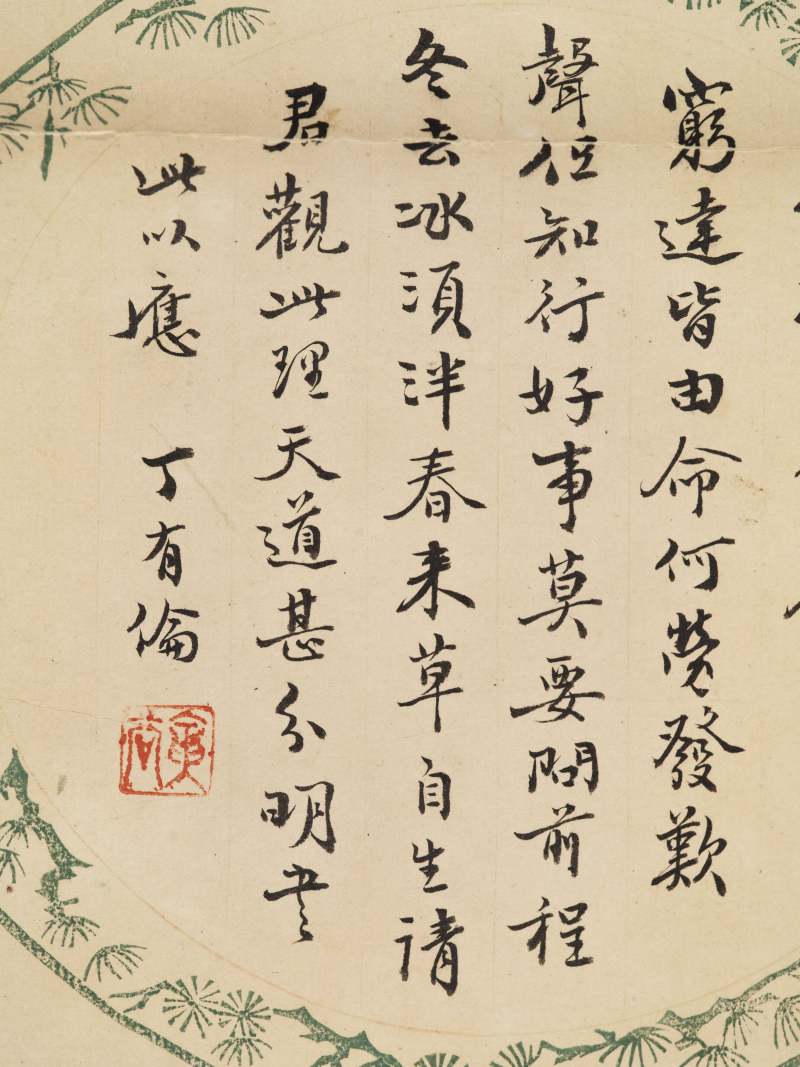 窮達皆由命何勞發歎
聲但知行好事莫要問前程
冬去冰須泮春来草自生請
君觀此理天道甚分明書
此以應 丁有倫